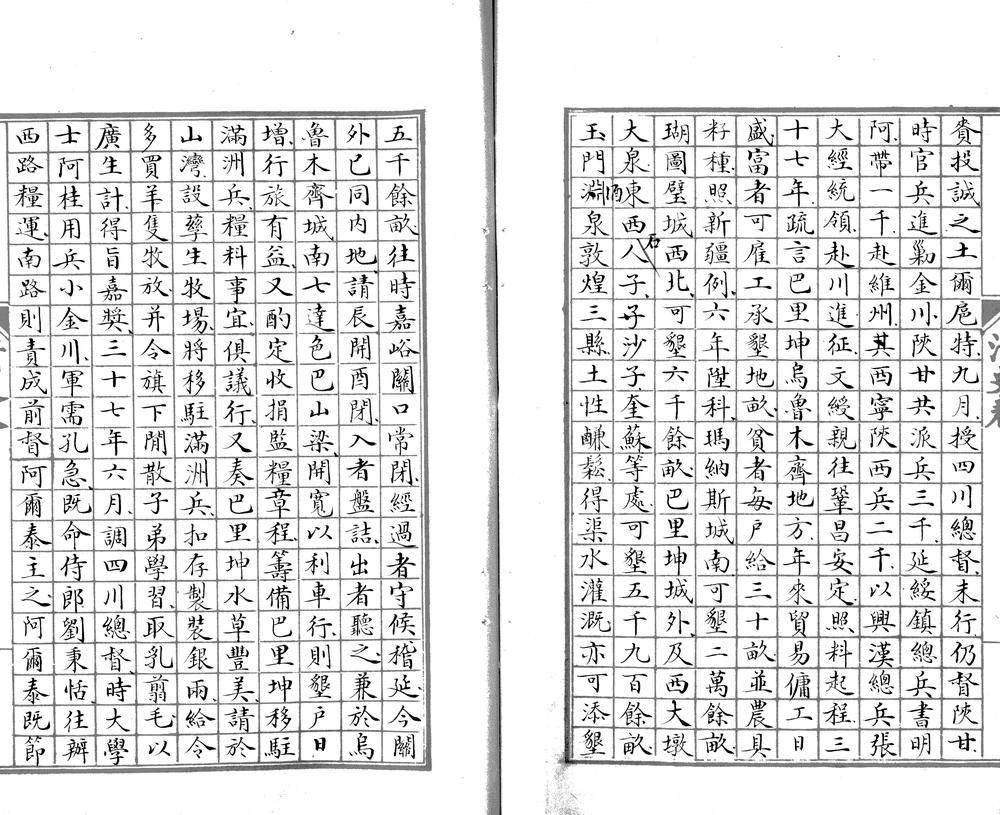 賚投誠之土爾扈特九月授四川總督未行仍督陜甘
時官兵進勦金川陜甘共派兵三千延綏鎮總兵書明
阿帶一千赴維州其西寧陜西兵二千以興漢總兵張
大經統領赴川進征文綬親往鞏昌安定照料起程三
十七年疏言巴里坤烏魯木齊地方年來貿易傭工日
盛富者可雇工承墾地畝貧者每户給三十畝並農具
籽種照新疆例六年陞科瑪納斯城南可墾二萬餘畝
瑚圖璧城西北可墾六千餘畝巴里坤城外及西大墩
大泉東西八石子子沙子奎蘇等處可墾五千九百餘畝
玉門淵泉敦煌三縣土性鹻鬆得渠水灌溉亦可添墾
五千餘畝往時嘉峪關口常閉經過者守候稽延今關
外已同内地請辰開酉閉入者盤詰出者聽之兼於烏
魯木齊城南七達色巴山梁開寬以利車行則墾戶日
增行旅有益又酌定收捐監糧章程籌備巴里坤移駐
滿洲兵糧料事宜俱議行又奏巴里坤水草豐美請於
山灣設孳生牧場將移駐滿洲兵扣存製裝銀兩給令
多買羊隻牧放并令旗下閒散子弟學習取乳翦毛以
廣生計得旨嘉獎三十七年六月調四川總督時大學
士阿桂用兵小金川軍需孔急既命侍郎劉秉恬往辦
西路糧運南路則責成前督阿爾泰主之阿爾泰既節